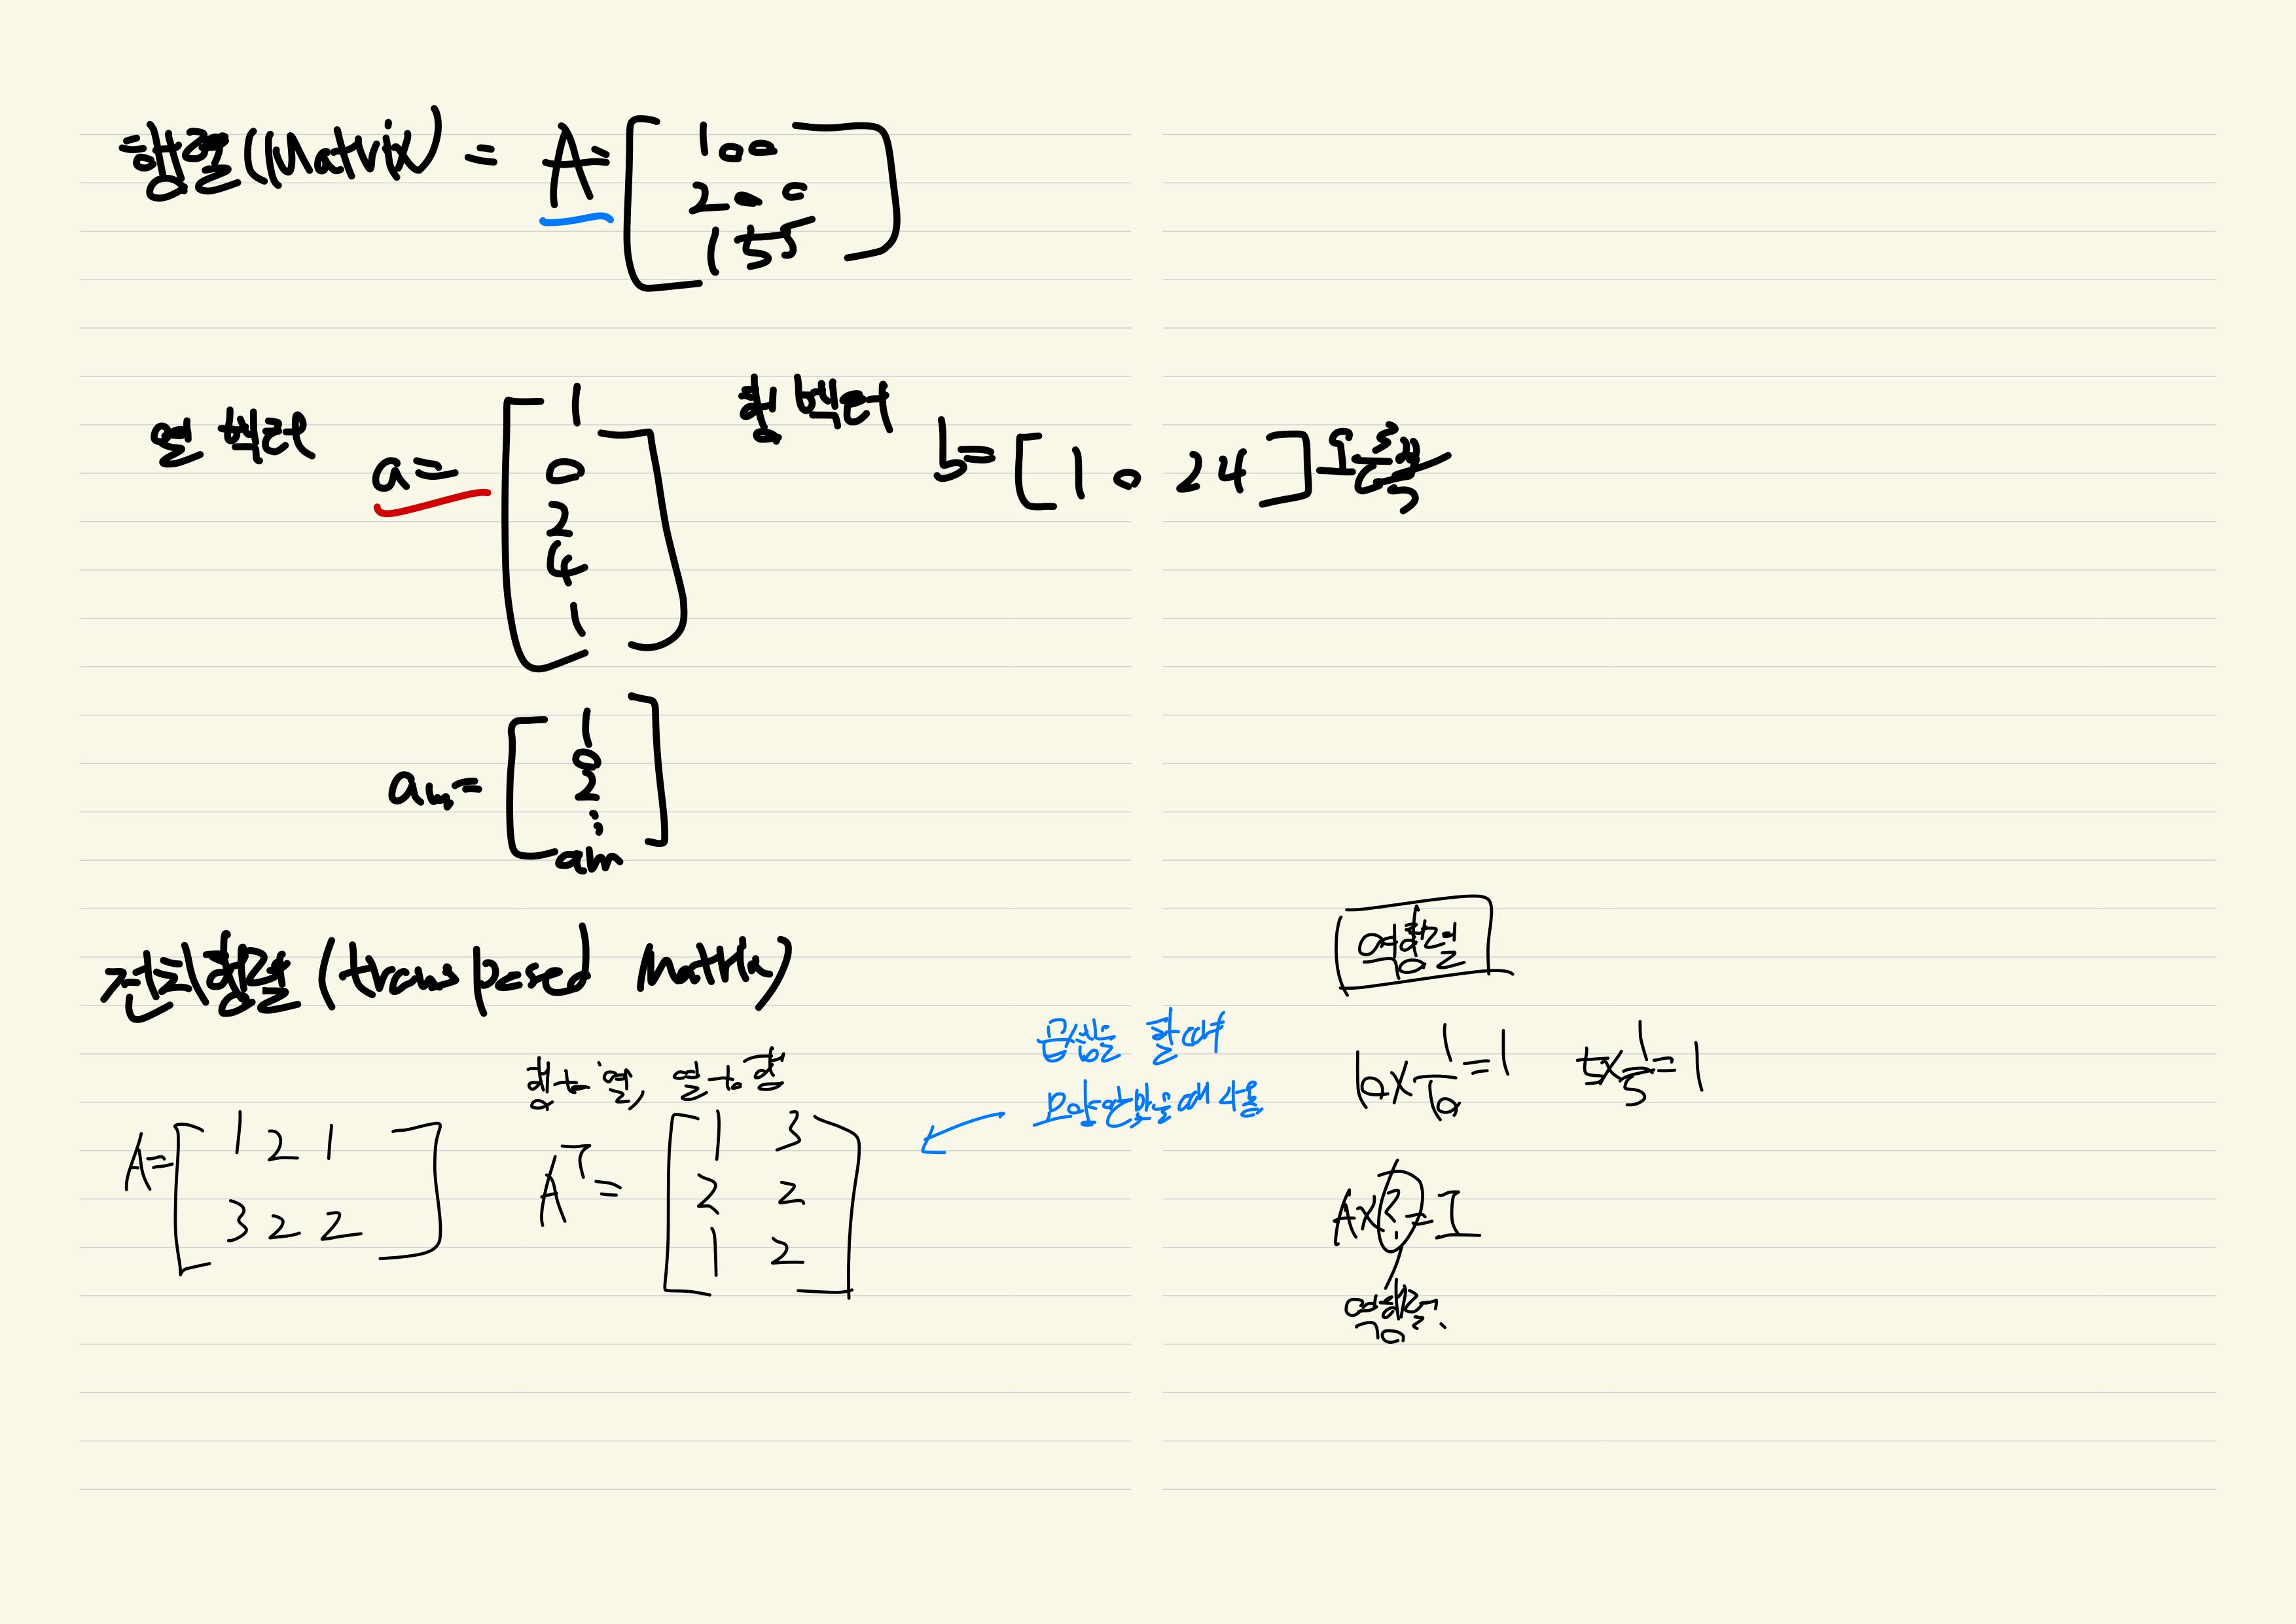 행렬(Matrix) = A= [ 1 0 0
2 0 0
1 5 5 ]
열 벡터 a= [ 1
0
2
4
1 ]
행 벡터 b= [ 1 0 2 4 ]
am= [ 1
0
2
⋮
am ]
전치행렬 (transposed Matrix)
행→열, 열→행
A= [ 1 2 1
3 2 2 ]
A^T = [ 1 3
2 2
1 2 ]
역행렬
6×1/6=1 5×1/5=1
A×?=I
역행렬